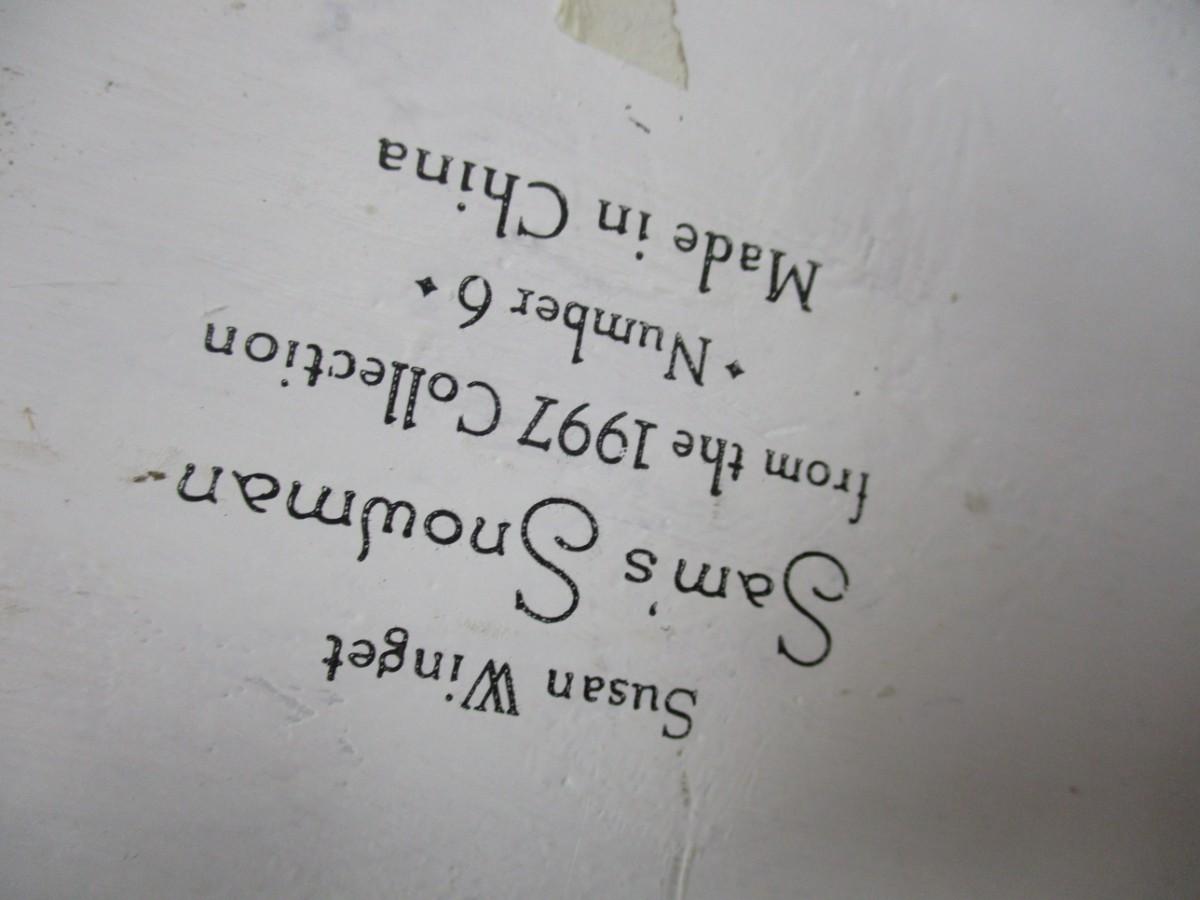 Susan Winget
Sam's Snowman
from the 1997 Collection
✦ Number 6 ✦
Made in China